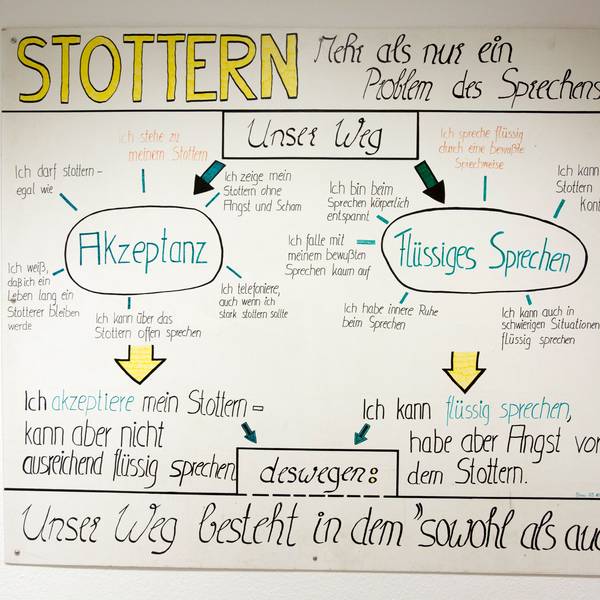 STOTTERN
Mehr als nur ein
Problem des Sprechens
Unser Weg
Ich stehe zu
meinem Stottern
Ich darf stottern –
egal wie
Ich zeige mein
Stottern ohne
Angst und Scham
Akzeptanz
Ich weiß,
daß ich ein
Leben lang ein
Stotterer bleiben
werde
Ich kann über das
Stottern offen sprechen
Ich telefoniere,
auch wenn ich
stark stottern sollte
Ich spreche flüssig
durch eine bewußte
Sprechweise
Ich bin beim
Sprechen körperlich
entspannt
Ich kann
Stottern
kont
Ich falle mit
meinem bewußten
Sprechen kaum auf
Flüssiges Sprechen
Ich habe innere Ruhe
beim Sprechen
Ich kann auch in
schwierigen Situationen
flüssig sprechen
Ich akzeptiere mein Stottern –
kann aber nicht
ausreichend flüssig sprechen
Ich kann flüssig sprechen,
habe aber Angst vor
dem Stottern.
deswegen:
Unser Weg besteht in dem "sowohl als auc